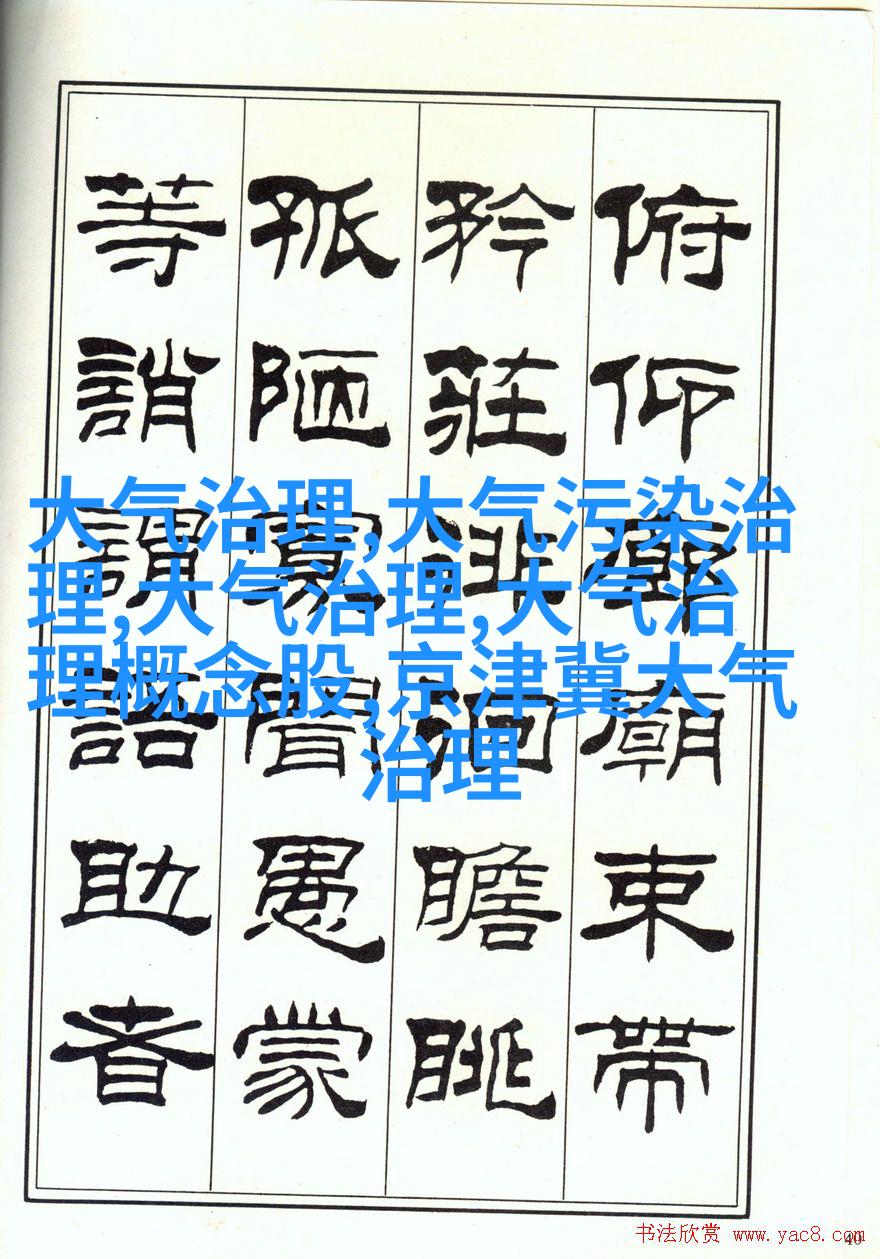 俯仰廊廟束帶
矜莊徘徊瞻眺
孤陋寡聞愚蒙
等誚謂語助者
大气治理,大气污染治
理,大气治理,大气治
理概念股,京津冀大气
治理
书法欣赏 www.yac8.com
40